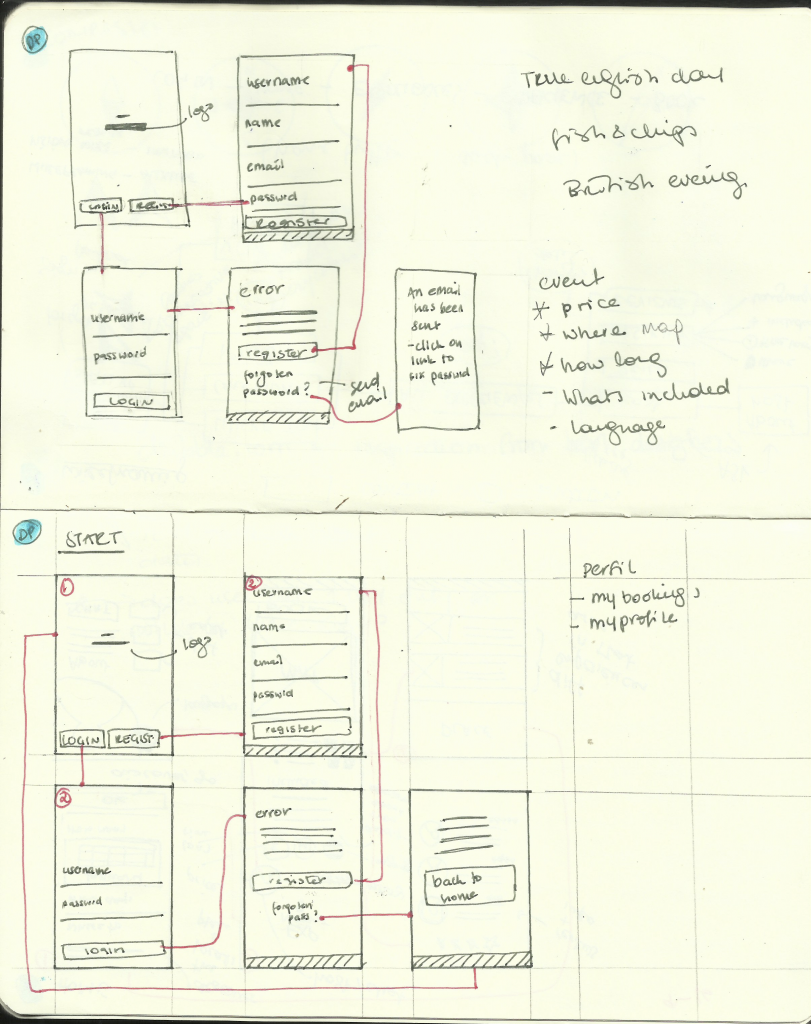 DP
logo
LOGIN
REGIST
username
name
email
passwrd
Register
True english day
fish & chips
British evening
username
password
LOGIN
error
register
forgoten
password?
send
email
An email
has been
sent
- click on
link to
fix passwrd
event
* price
* where map
* how long
- Whats included
- language
DP
START
1
logo
LOGIN
REGIST
2
username
name
email
passwrd
register
perfil
- my bookings
- my profile
2
username
passwrd
login
error
register
forgoten
pass?
back to
home